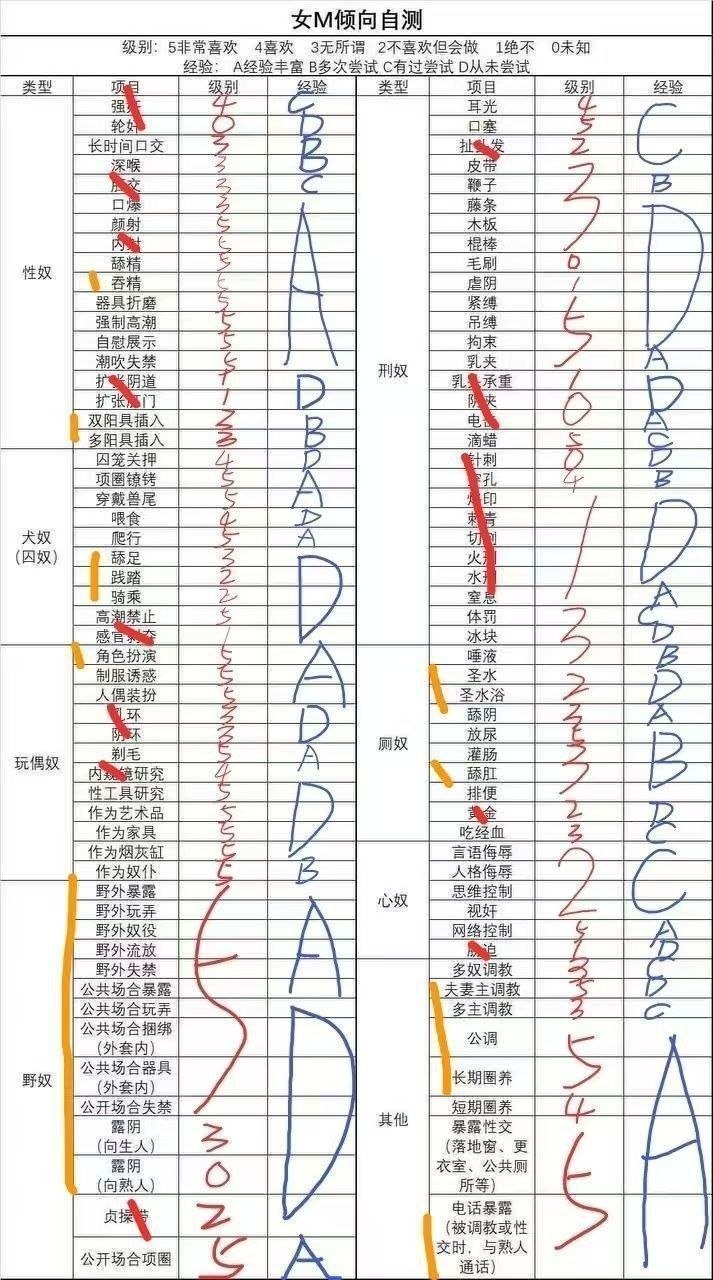 女M倾向自测
级别：5非常喜欢 4喜欢 3无所谓 2不喜欢但会做 1绝不 0未知
经验： A经验丰富 B多次尝试 C有过尝试 D从未尝试
类型 项目 级别 经验 类型 项目 级别 经验
性奴
强 4 C
轮奸 0 D
长时间口交 3 B
深喉 3
肛交 3 C
口爆 3
颜射 5
内射 5
舔精 5
吞精 5
器具折磨 5
强制高潮 5
自慰展示 5
潮吹失禁 5
A
扩张阴道 1
扩张肛门 1
D
双阳具插入 3
多阳具插入 3
B
犬奴
（囚奴）
囚笼关押 4 D
项圈镣铐 5
穿戴兽尾 5
A
喂食 4 D
爬行 5 A
舔足 3
践踏 2
骑乘 2
高潮禁止 5
感官剥夺 1
D
玩偶奴
角色扮演 5
制服诱惑 5
人偶装扮 5
A
乳环 3
阴环 3
D
剃毛 5 A
内窥镜研究 4
性工具研究 5
作为艺术品 5
作为家具 5
D
作为烟灰缸 5
作为奴仆 5
B
野奴
野外暴露
野外玩弄
野外奴役
野外流放
野外失禁
公共场合暴露
A
公共场合玩弄
公共场合捆绑
（外套内）
公共场合器具
（外套内）
公开场合失禁
5
露阴
（向生人）
3
露阴
（向熟人）
0
贞操带 2
D
公开场合项圈 5 A
刑奴
耳光 4
口塞 5
扯头发 2
皮带
C
鞭子 B
藤条
木板
棍棒
3
毛刷 0
虐阴 1
紧缚
吊缚
拘束
D
乳夹 A
5
乳头承重 1
阴夹
D
电击 A
0
滴蜡 5 C
针刺 0 D
穿孔 4 B
烙印
刺青
切割
火刑
水刑
D
窒息 A
1
体罚 C
冰块 D
厕奴
唾液 B
3
圣水
圣水浴
2
D
舔阴 3 A
放尿 5
灌肠
舔肛
B
排便
3
黄金 2 D
吃经血 3 C
心奴
言语侮辱
人格侮辱
思维控制
视奸
2
C
网络控制 5 A
胁迫 1 D
其他
多奴调教 3 C
夫妻主调教 5 D
多主调教 3 C
公调
长期圈养
5
短期圈养 4
暴露性交
（落地窗、更
衣室、公共厕
所等）
电话暴露
（被调教或性
交时，与熟人
通话）
5
A